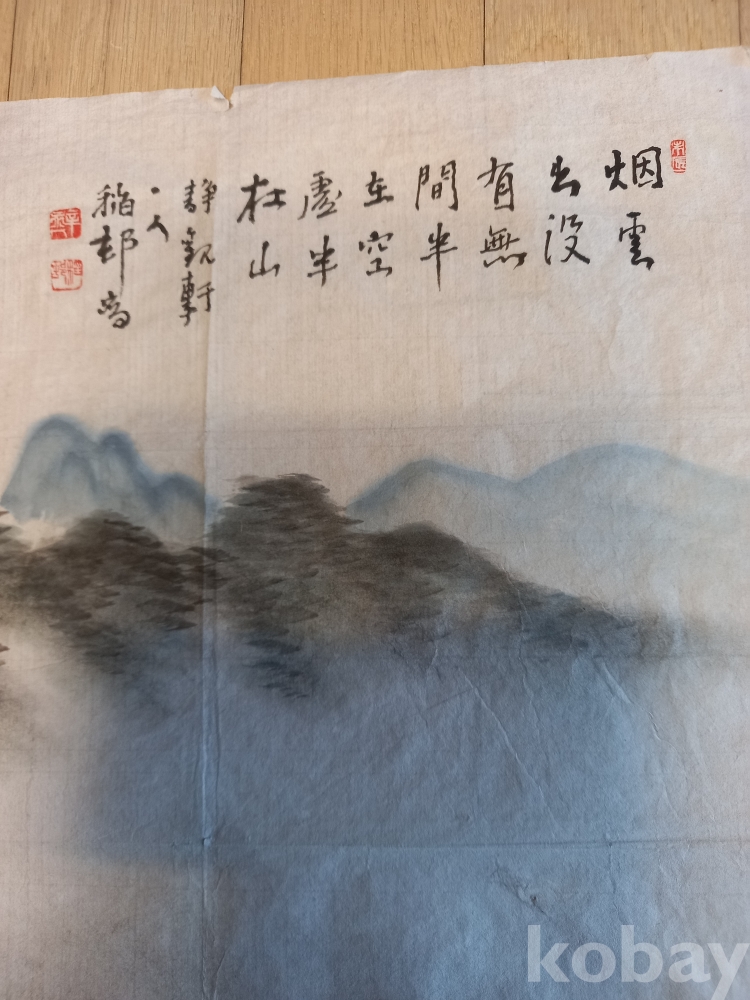 烟雲
出没
有無
間半
在空
虛半
在山
靜觀軒
稻邨
kobay